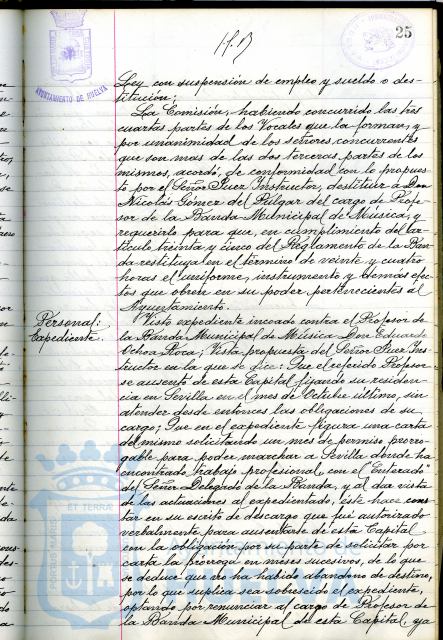 25
AYUNTAMIENTO DE HUELVA
Ley con suspensión de empleo y sueldo o des-
titución;
La Comisión, habiendo concurrido las tres
cuartas partes de los Vocales que la forman, y
por unanimidad de los señores concurrentes
que son mas de las dos terceras partes de los
mismos, acordó, de conformidad con lo propues-
to por el Señor Juez Instructor, destituir a Don
Nicolás Gómez del Pulgar del cargo de Profe-
sor de la Banda Municipal de Música, y
requerirlo para que, en cumplimiento del ar-
tículo treinta y cinco del Reglamento de la Ban-
da restituya en el término de veinte y cuatro
horas el uniforme, instrumento y demás efec-
tos que obren en su poder pertenecientes al
Ayuntamiento.
Personal:
Expediente.
Visto expediente incoado contra el Profesor de
la Banda Municipal de Música Don Eduardo
Ochoa Roca; Vista propuesta del Señor Juez Ins-
tructor en la que se dice: Que el referido Profesor
se ausentó de esta Capital fijando su residen-
cia en Sevilla en el mes de Octubre último, sin
atender desde entonces las obligaciones de su
cargo; Que en el expediente figura una carta
del mismo solicitando un mes de permiso prorro-
gable para poder marchar a Sevilla donde ha
encontrado trabajo profesional, con el "Enterado"
del Señor Delegado de la Banda, y al dar vista
de las actuaciones al expedientado, este hace cons
tar en su escrito de descargo que fué autorizado
verbalmente para ausentarse de esta Capital
con la obligación por su parte de solicitar por
carta la prórroga en meses sucesivos, de lo que
se deduce que no ha habido abandono de destino,
por lo que suplica sea sobreseido el expediente,
optando por renunciar al cargo de Profesor de
la Banda Municipal de esta Capital, ya
PORTUS MARIS ET TERRÆ